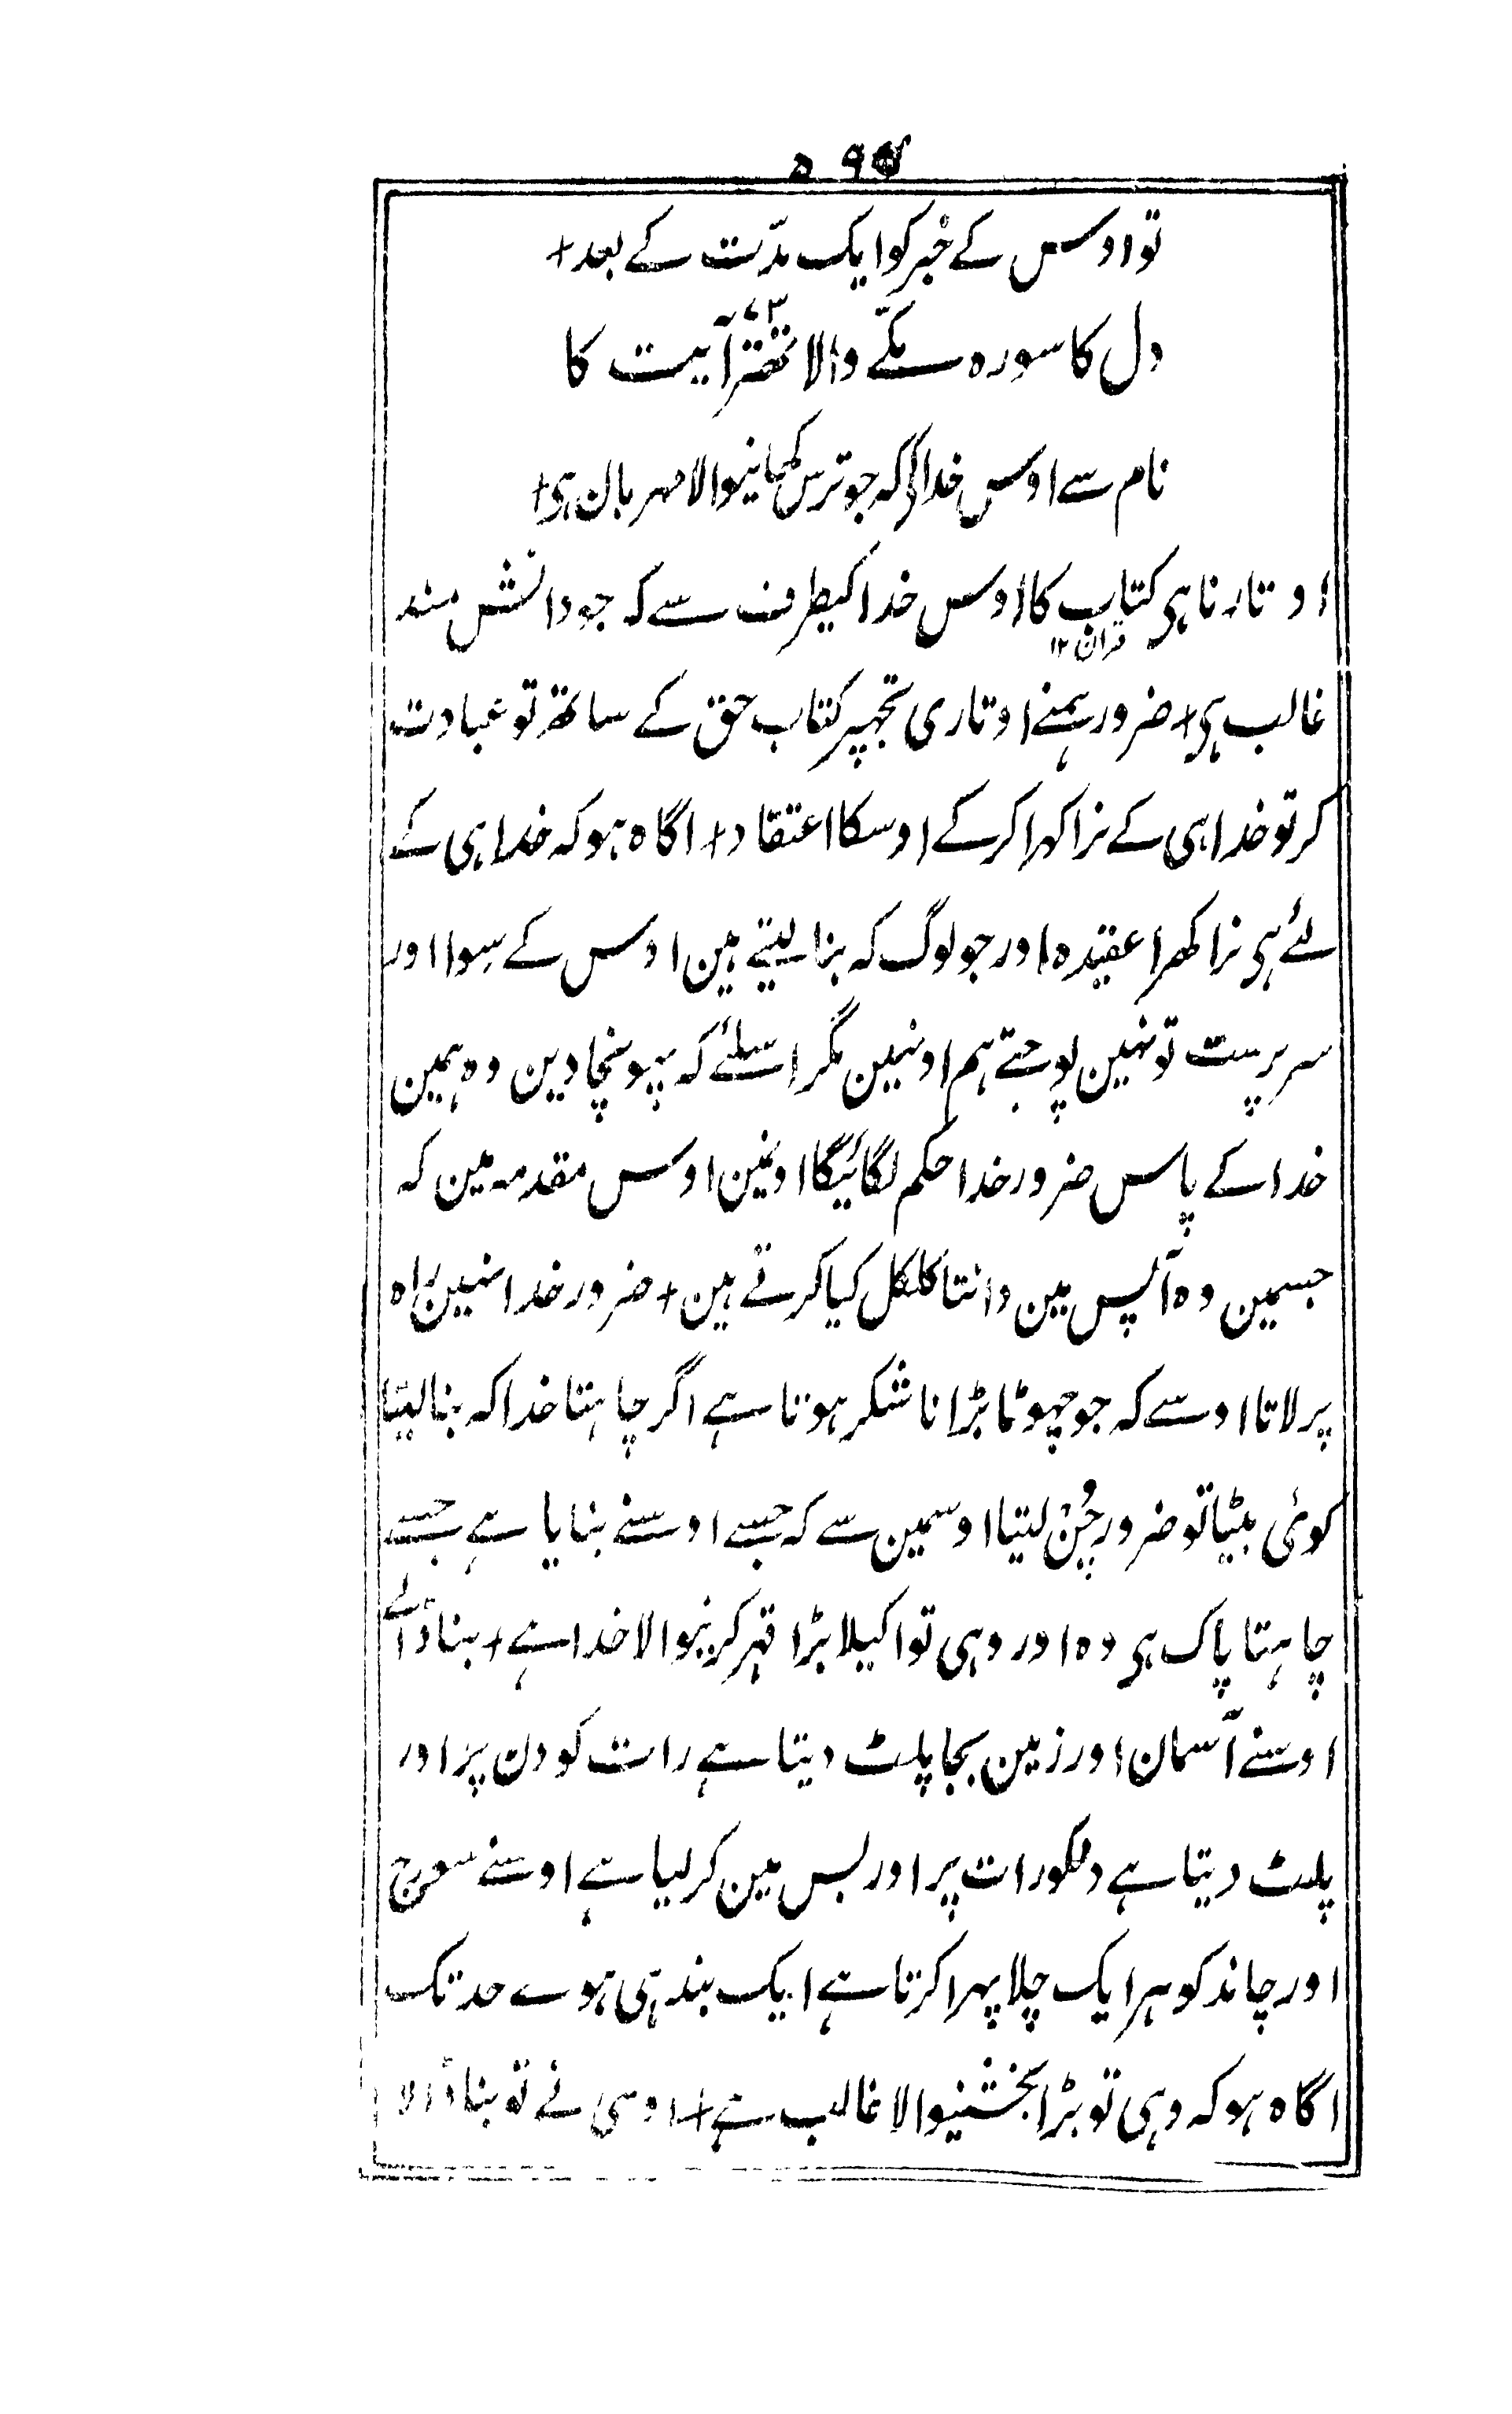 تو اوس کے خبر کو ایک مدّت کے بعد +
دل کا سورہ مکّے والا تہتر آیت کا
۷۳
نام سے اوس خدا کہ جو ترس کھانیوالا مہربان ہی +
اوتارنا ہی کتاب کا اوس خدا کیطرف سے کہ جو دانش مند
قران ۱۲
غالب ہی + ضرور ہمنے اوتاری تجہپر کتاب حق کے ساتھ تو عبادت
کر تو خدا ہی کے نرا کہرا کرکے اوسکا اعتقاد + اگاہ ہو کہ خدا ہی کے
لئے ہی نرا کھرا عقیدہ اور جو لوگ کہ بنا لیتے ہین اوس کے سوا اور
سرپرست تو نہین پوجتے ہم اونہین مگر اسلئے کہ پہونچا دین وہ ہمین
خدا کے پاس ضرور خدا حکم لگائیگا اونمین اوس مقدمہ مین کہ
جسمین وہ آپس مین دانتا کلکل کیا کرتے ہین + ضرور خدا نہین راہ
پر لاتا اوسے کہ جو جہوٹا بڑا ناشکر ہوتا ہے اگر چاہتا خدا کہ بنا لیتا
کوئی بیٹا تو ضرور چُن لیتا اوسمین سے کہ جسے اوسنے بنایا ہے جسے
چاہتا پاک ہی وہ اور وہی تو اکیلا بڑا قہر کرنیوالا خدا ہے + بنا ڈالے
اوسنے آسمان اور زمین بجا پلٹ دیتا ہے رات کو دن پر اور
پلٹ دیتا ہے دنکو رات پر اور بس مین کر لیا ہے اوسنے سورج
اور چاند کو ہر ایک چلا پہرا کرتا ہے ایک بندہی ہوے حد تک
اگاہ ہو کہ وہی تو بڑا بخشنیوالا غالب ہے + اوسی نے تو بنا ڈالا